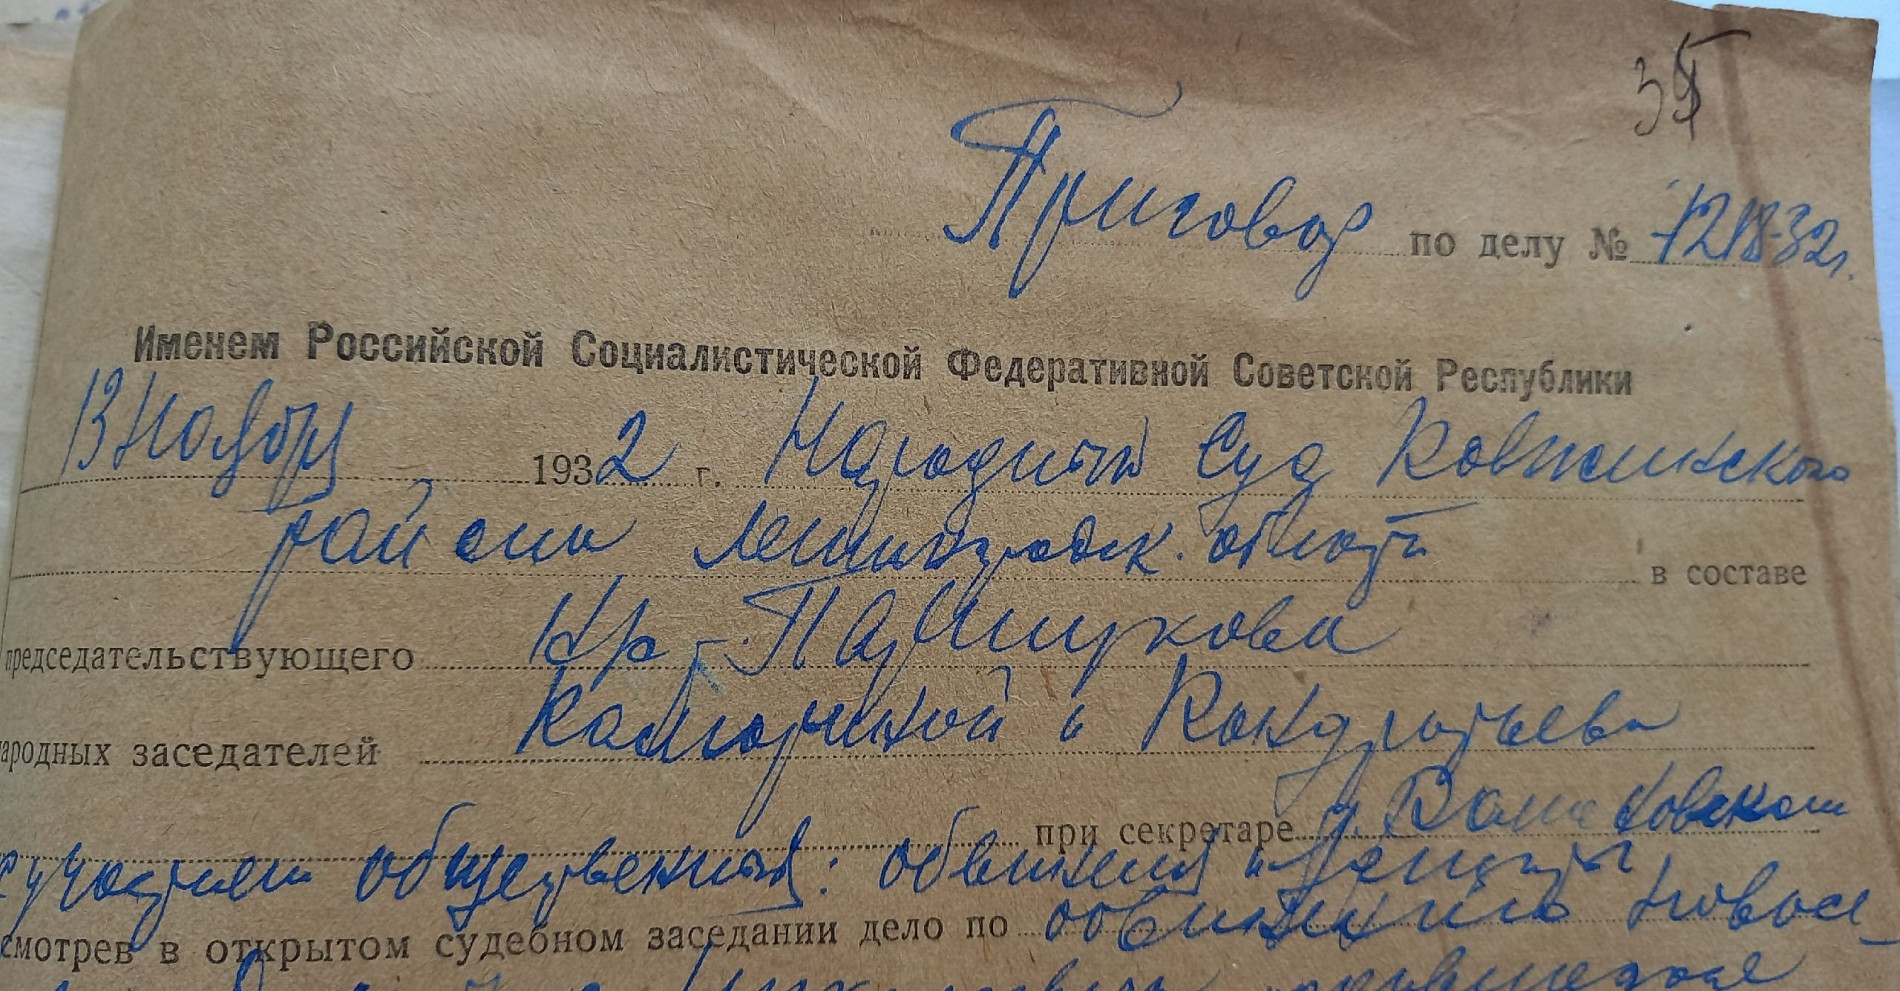 Приговор по делу № 1218-32г.
Именем Российской Социалистической Федеративной Советской Республики
13 Ноября 1932 г. Народный Суд Ковжинского
района Ленинградск. области в составе
председательствующего Кр-Паушукова
ародных заседателей и Кондратьева
при секретаре
с участием общественных: обвинения и защиты
смотрев в открытом судебном заседании дело по обвинению